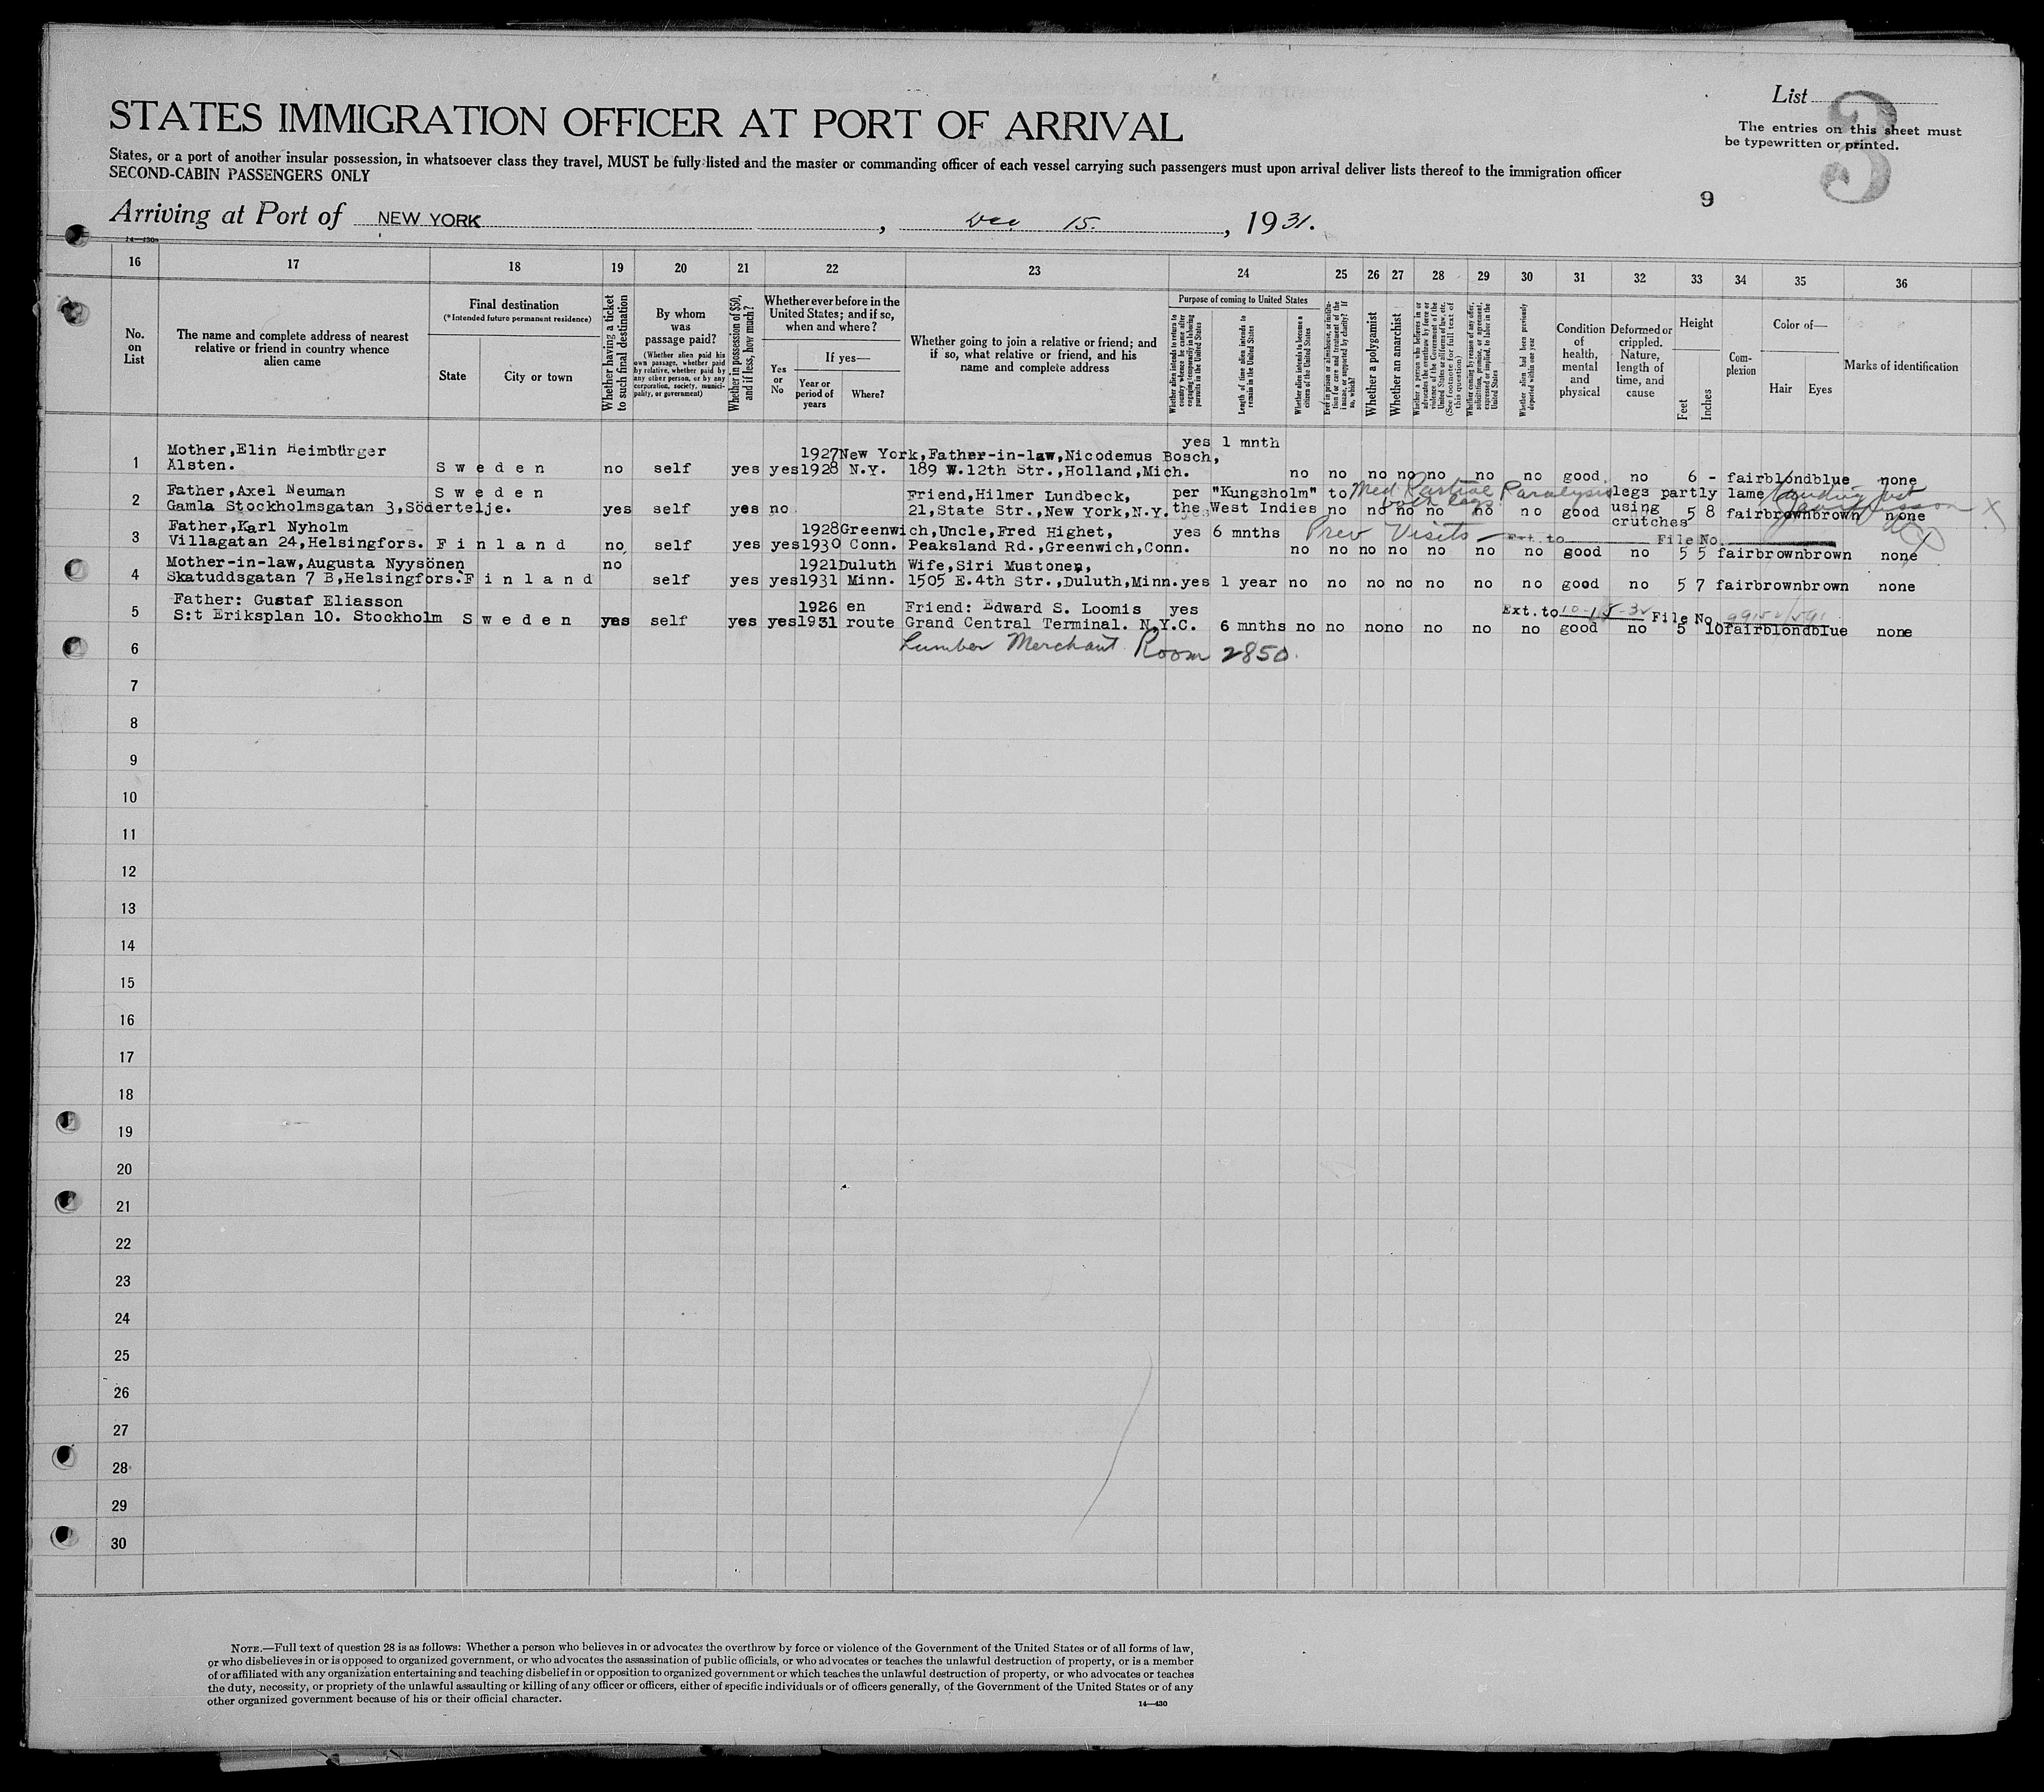 STATES IMMIGRATION OFFICER AT PORT OF ARRIVAL
List
3
The entries on this sheet must
be typewritten or printed.
States, or a port of another insular possession, in whatsoever class they travel, MUST be fully listed and the master or commanding officer of each vessel carrying such passengers must upon arrival deliver lists thereof to the immigration officer
SECOND-CABIN PASSENGERS ONLY
9
Arriving at Port of NEW YORK, Dec 15. , 1931.
14—430a
16 17 18 19 20 21 22 23 24 25 26 27 28 29 30 31 32 33 34 35 36
No. on List
The name and complete address of nearest
relative or friend in country whence
alien came
Final destination
(*Intended future permanent residence)
State
City or town
Whether having a ticket
to such final destination
By whom
was
passage paid?
(Whether alien paid his
own passage, whether paid
by relative, whether paid by
any other person, or by any
corporation, society, munici-
pality, or government)
Whether in possession of $50,
and if less, how much?
Whether ever before in the
United States; and if so,
when and where?
Yes
or
No
If yes—
Year or
period of
years
Where?
Whether going to join a relative or friend; and
if so, what relative or friend, and his
name and complete address
Purpose of coming to United States
Whether alien intends to return to
country whence he came after
engaging temporarily in laboring
pursuits in the United States
Length of time alien intends to
remain in the United States
Whether alien intends to become a
citizen of the United States
Ever in prison or almshouse, or institu-
tion for care and treatment of the
insane, or supported by charity? If
so, which?
Whether a polygamist
Whether an anarchist
Whether a person who believes in or
advocates the overthrow by force or
violence of the Government of the
United States or all forms of law, etc.
(See footnote for full text of
this question)
Whether coming by reason of any offer,
solicitation, promise, or agreement,
expressed or implied, to labor in the
United States
Whether alien had been previously
deported within one year
Condition
of
health,
mental
and
physical
Deformed or
crippled.
Nature,
length of
time, and
cause
Height
Feet
Inches
Com-
plexion
Color of—
Hair
Eyes
Marks of identification
yes 1 mnth
Mother,Elin Heimbürger 1927 New York,Father-in-law,Nicodemus Bosch,
1 Älsten. Sweden no self yes yes 1928 N.Y. 189 W.12th Str.,Holland,Mich. no no no no no no no good no 6 - fair blond blue none
Father,Axel Neuman Sweden Friend,Hilmer Lundbeck, per "Kungsholm" to Med Partial Paralysis legs partly lame
both legs
2 Gamla Stockholmsgatan 3,Södertelje. yes self yes no 21,State Str.,New York,N.Y. the West Indies no no no no no no good using 5 8 fair brown brown none
crutches
Father,Karl Nyholm 1928 Greenwich,Uncle,Fred Highet, yes 6 mnths Prev Visits — Ext. to File No.
3 Villagatan 24,Helsingfors. Finland no self yes yes 1930 Conn. Peaksland Rd.,Greenwich,Conn. no no no no no no no good no 5 5 fair brown brown none
Mother-in-law,Augusta Nyysönen no 1921 Duluth Wife,Siri Mustonen,
4 Skatuddsgatan 7 B,Helsingfors. Finland self yes yes 1931 Minn. 1505 E.4th Str.,Duluth,Minn. yes 1 year no no no no no no no good no 5 7 fair brown brown none
Father: Gustaf Eliasson 1926 en Friend: Edward S. Loomis yes Ext. to 10-15-32 File No.
5 S:t Eriksplan 10. Stockholm Sweden yes self yes yes 1931 route Grand Central Terminal. N.Y.C. 6 mnths no no no no no no no good no 5 10 fair blond blue none
6 Lumber Merchant Room 2850.
7
8
9
10
11
12
13
14
15
16
17
18
19
20
21
22
23
24
25
26
27
28
29
30
NOTE.—Full text of question 28 is as follows: Whether a person who believes in or advocates the overthrow by force or violence of the Government of the United States or of all forms of law,
or who disbelieves in or is opposed to organized government, or who advocates the assassination of public officials, or who advocates or teaches the unlawful destruction of property, or is a member
of or affiliated with any organization entertaining and teaching disbelief in or opposition to organized government or which teaches the unlawful destruction of property, or who advocates or teaches
the duty, necessity, or propriety of the unlawful assaulting or killing of any officer or officers, either of specific individuals or of officers generally, of the Government of the United States or of any
other organized government because of his or their official character.
14—430